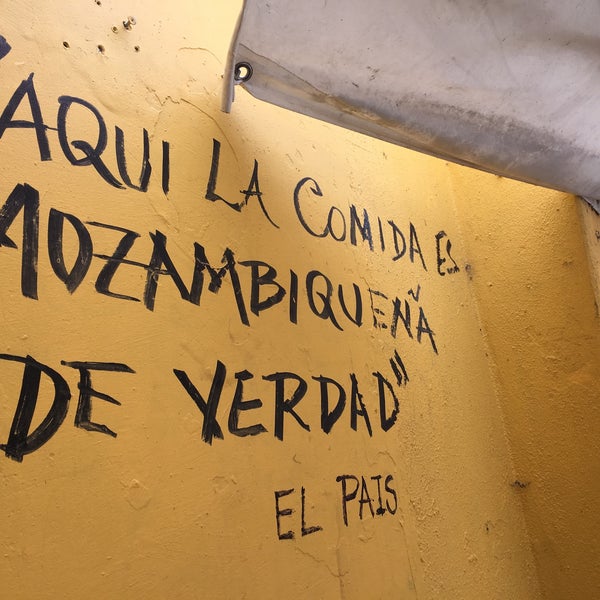 "AQUI LA COMIDA ES
MOZAMBIQUEÑA
DE VERDAD"
EL PAIS